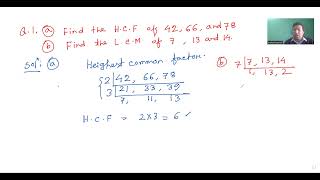 Q.1. (a) Find the H.C.F of 42, 66, and 78
(b) Find the L.C.M of 7, 13 and 14.
Solⁿ. (a) Heighest common factor.
2 | 42, 66, 78
3 | 21, 33, 39
7, 11, 13
H.C.F = 2×3 = 6
(b) 7 | 7, 13, 14
1, 13, 2